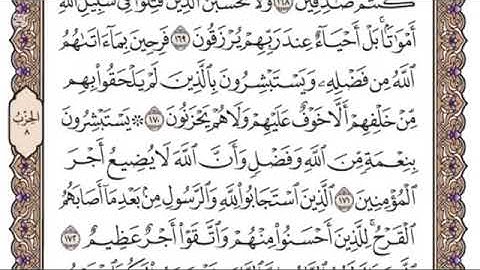 كُنتُمْ صَٰدِقِينَ ١٦٨ وَلَا تَحْسَبَنَّ ٱلَّذِينَ قُتِلُوا۟ فِى سَبِيلِ ٱللَّهِ
أَمْوَٰتًۢا ۚ بَلْ أَحْيَآءٌ عِندَ رَبِّهِمْ يُرْزَقُونَ ١٦٩ فَرِحِينَ بِمَآ ءَاتَىٰهُمُ
ٱللَّهُ مِن فَضْلِهِۦ وَيَسْتَبْشِرُونَ بِٱلَّذِينَ لَمْ يَلْحَقُوا۟ بِهِم
مِّنْ خَلْفِهِمْ أَلَّا خَوْفٌ عَلَيْهِمْ وَلَا هُمْ يَحْزَنُونَ ١٧٠ ۞ يَسْتَبْشِرُونَ
بِنِعْمَةٍ مِّنَ ٱللَّهِ وَفَضْلٍ وَأَنَّ ٱللَّهَ لَا يُضِيعُ أَجْرَ
ٱلْمُؤْمِنِينَ ١٧١ ٱلَّذِينَ ٱسْتَجَابُوا۟ لِلَّهِ وَٱلرَّسُولِ مِنۢ بَعْدِ مَآ أَصَابَهُمُ
ٱلْقَرْحُ ۚ لِلَّذِينَ أَحْسَنُوا۟ مِنْهُمْ وَٱتَّقَوْا۟ أَجْرٌ عَظِيمٌ ١٧٢
الحزب
٨